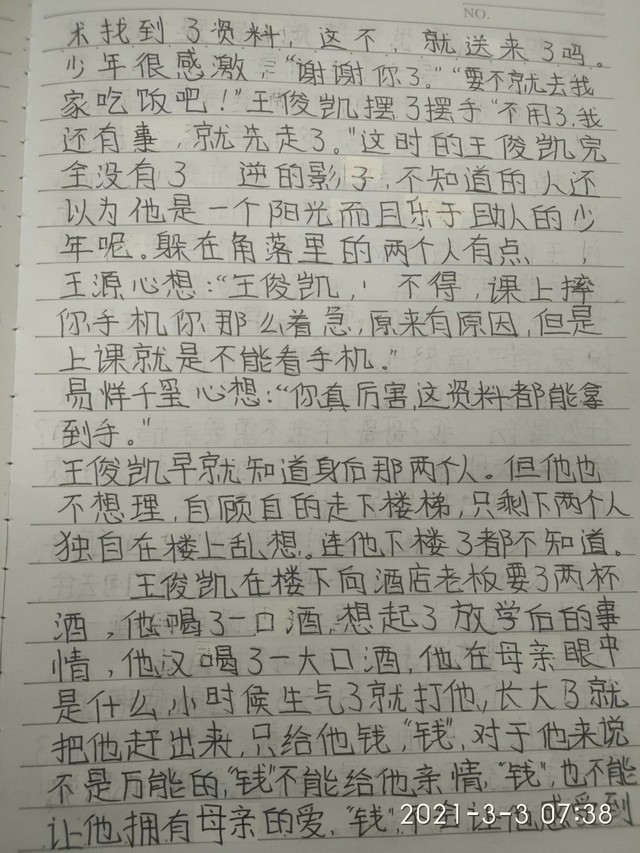 NO.
术找到了资料，这不，就送来了吗。
少年很感激，“谢谢你了。”“要不就去我
家吃饭吧！”王俊凯摆了摆手“不用了，我
还有事，就先走了。”这时的王俊凯完
全没有了 逆的影子，不知道的人还
以为他是一个阳光而且乐于助人的少
年呢。躲在角落里的两个人有点 ，
王源心想：“王俊凯， 不得，课上摔
你手机你那么着急，原来有原因，但是
上课就是不能看手机。”
易烊千玺心想：“你真厉害，这资料都能拿
到手。”
王俊凯早就知道身后那两个人。但他也
不想理，自顾自的走下楼梯，只剩下两个人
独自在楼上乱想。连他下楼了都不知道。
王俊凯在楼下向酒店老板要了两杯
酒，他喝了一口酒，想起了放学后的事
情，他又喝了一大口酒，他在母亲眼中
是什么，小时候生气了就打他，长大了就
把他赶出来，只给他钱，“钱”，对于他来说
不是万能的，“钱”不能给他亲情，“钱”，也不能
让他拥有母亲的爱，“钱”，不会让他感受到
2021-3-3 07:38